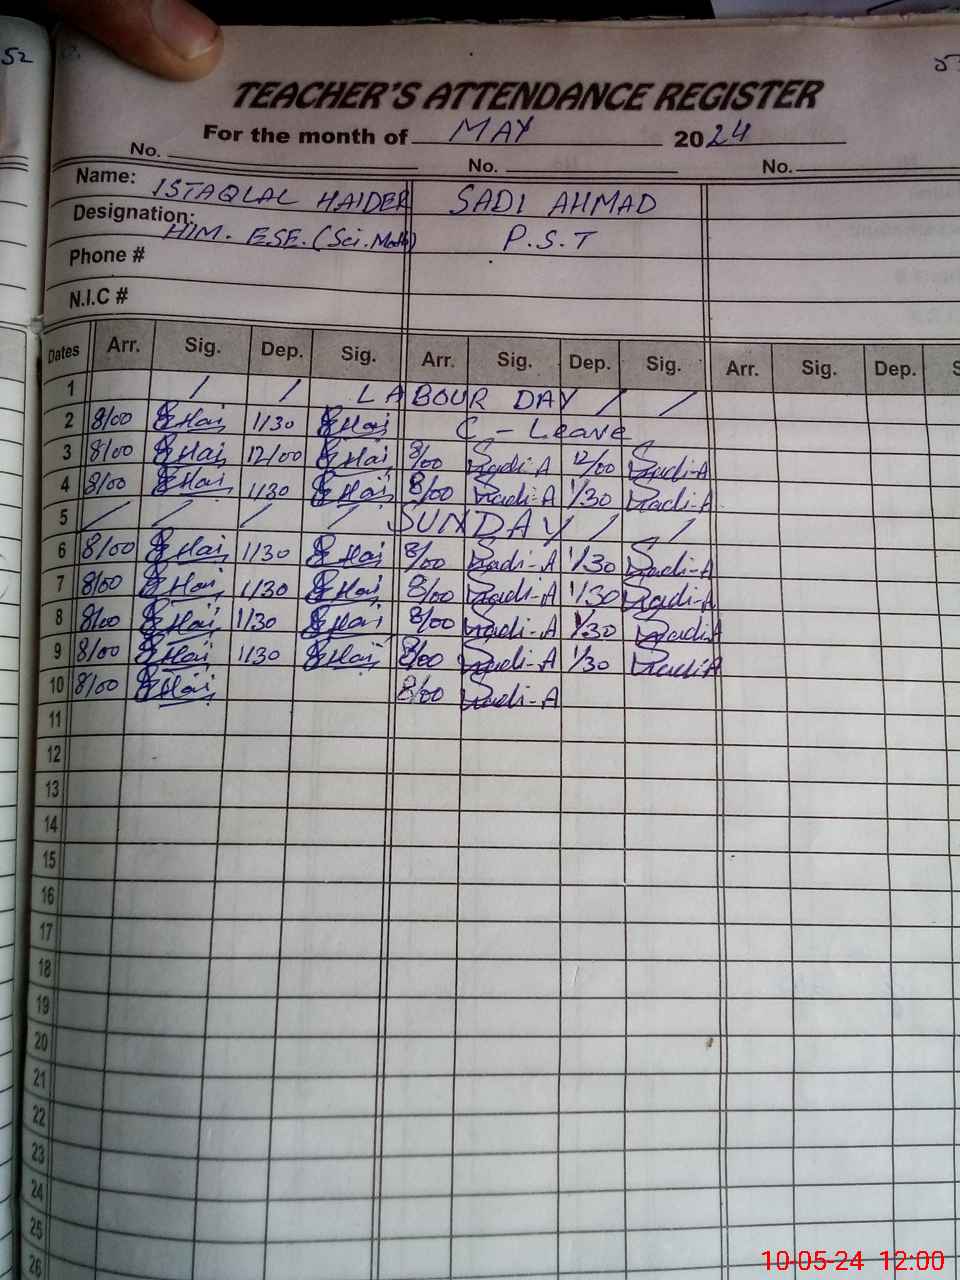 52
TEACHER'S ATTENDANCE REGISTER
For the month of MAY 2024
No. No. No.
Name: ISTAQLAL HAIDER SADI AHMAD
Designation: H/M. ESE. (Sci. Math) P.S.T
Phone #
N.I.C #
Dates Arr. Sig. Dep. Sig. Arr. Sig. Dep. Sig. Arr. Sig. Dep. S
1 / / LABOUR DAY / /
2 8/00 1/30 C - Leave
3 8/00 12/00 8/00 Sadi-A 12/00 Sadi-A
4 8/00 1/30 8/00 Sadi-A 1/30 Sadi-A
5 / / / / SUNDAY / /
6 8/00 1/30 8/00 Sadi-A 1/30 Sadi-A
7 8/00 1/30 8/00 Sadi-A 1/30 Sadi-A
8 8/00 1/30 8/00 Sadi-A 1/30 SadiA
9 8/00 1/30 8/00 Sadi-A 1/30 SadiA
10 8/00 8/00 Sadi-A
11
12
13
14
15
16
17
18
19
20
21
22
23
24
25
26
10-05-24 12:00